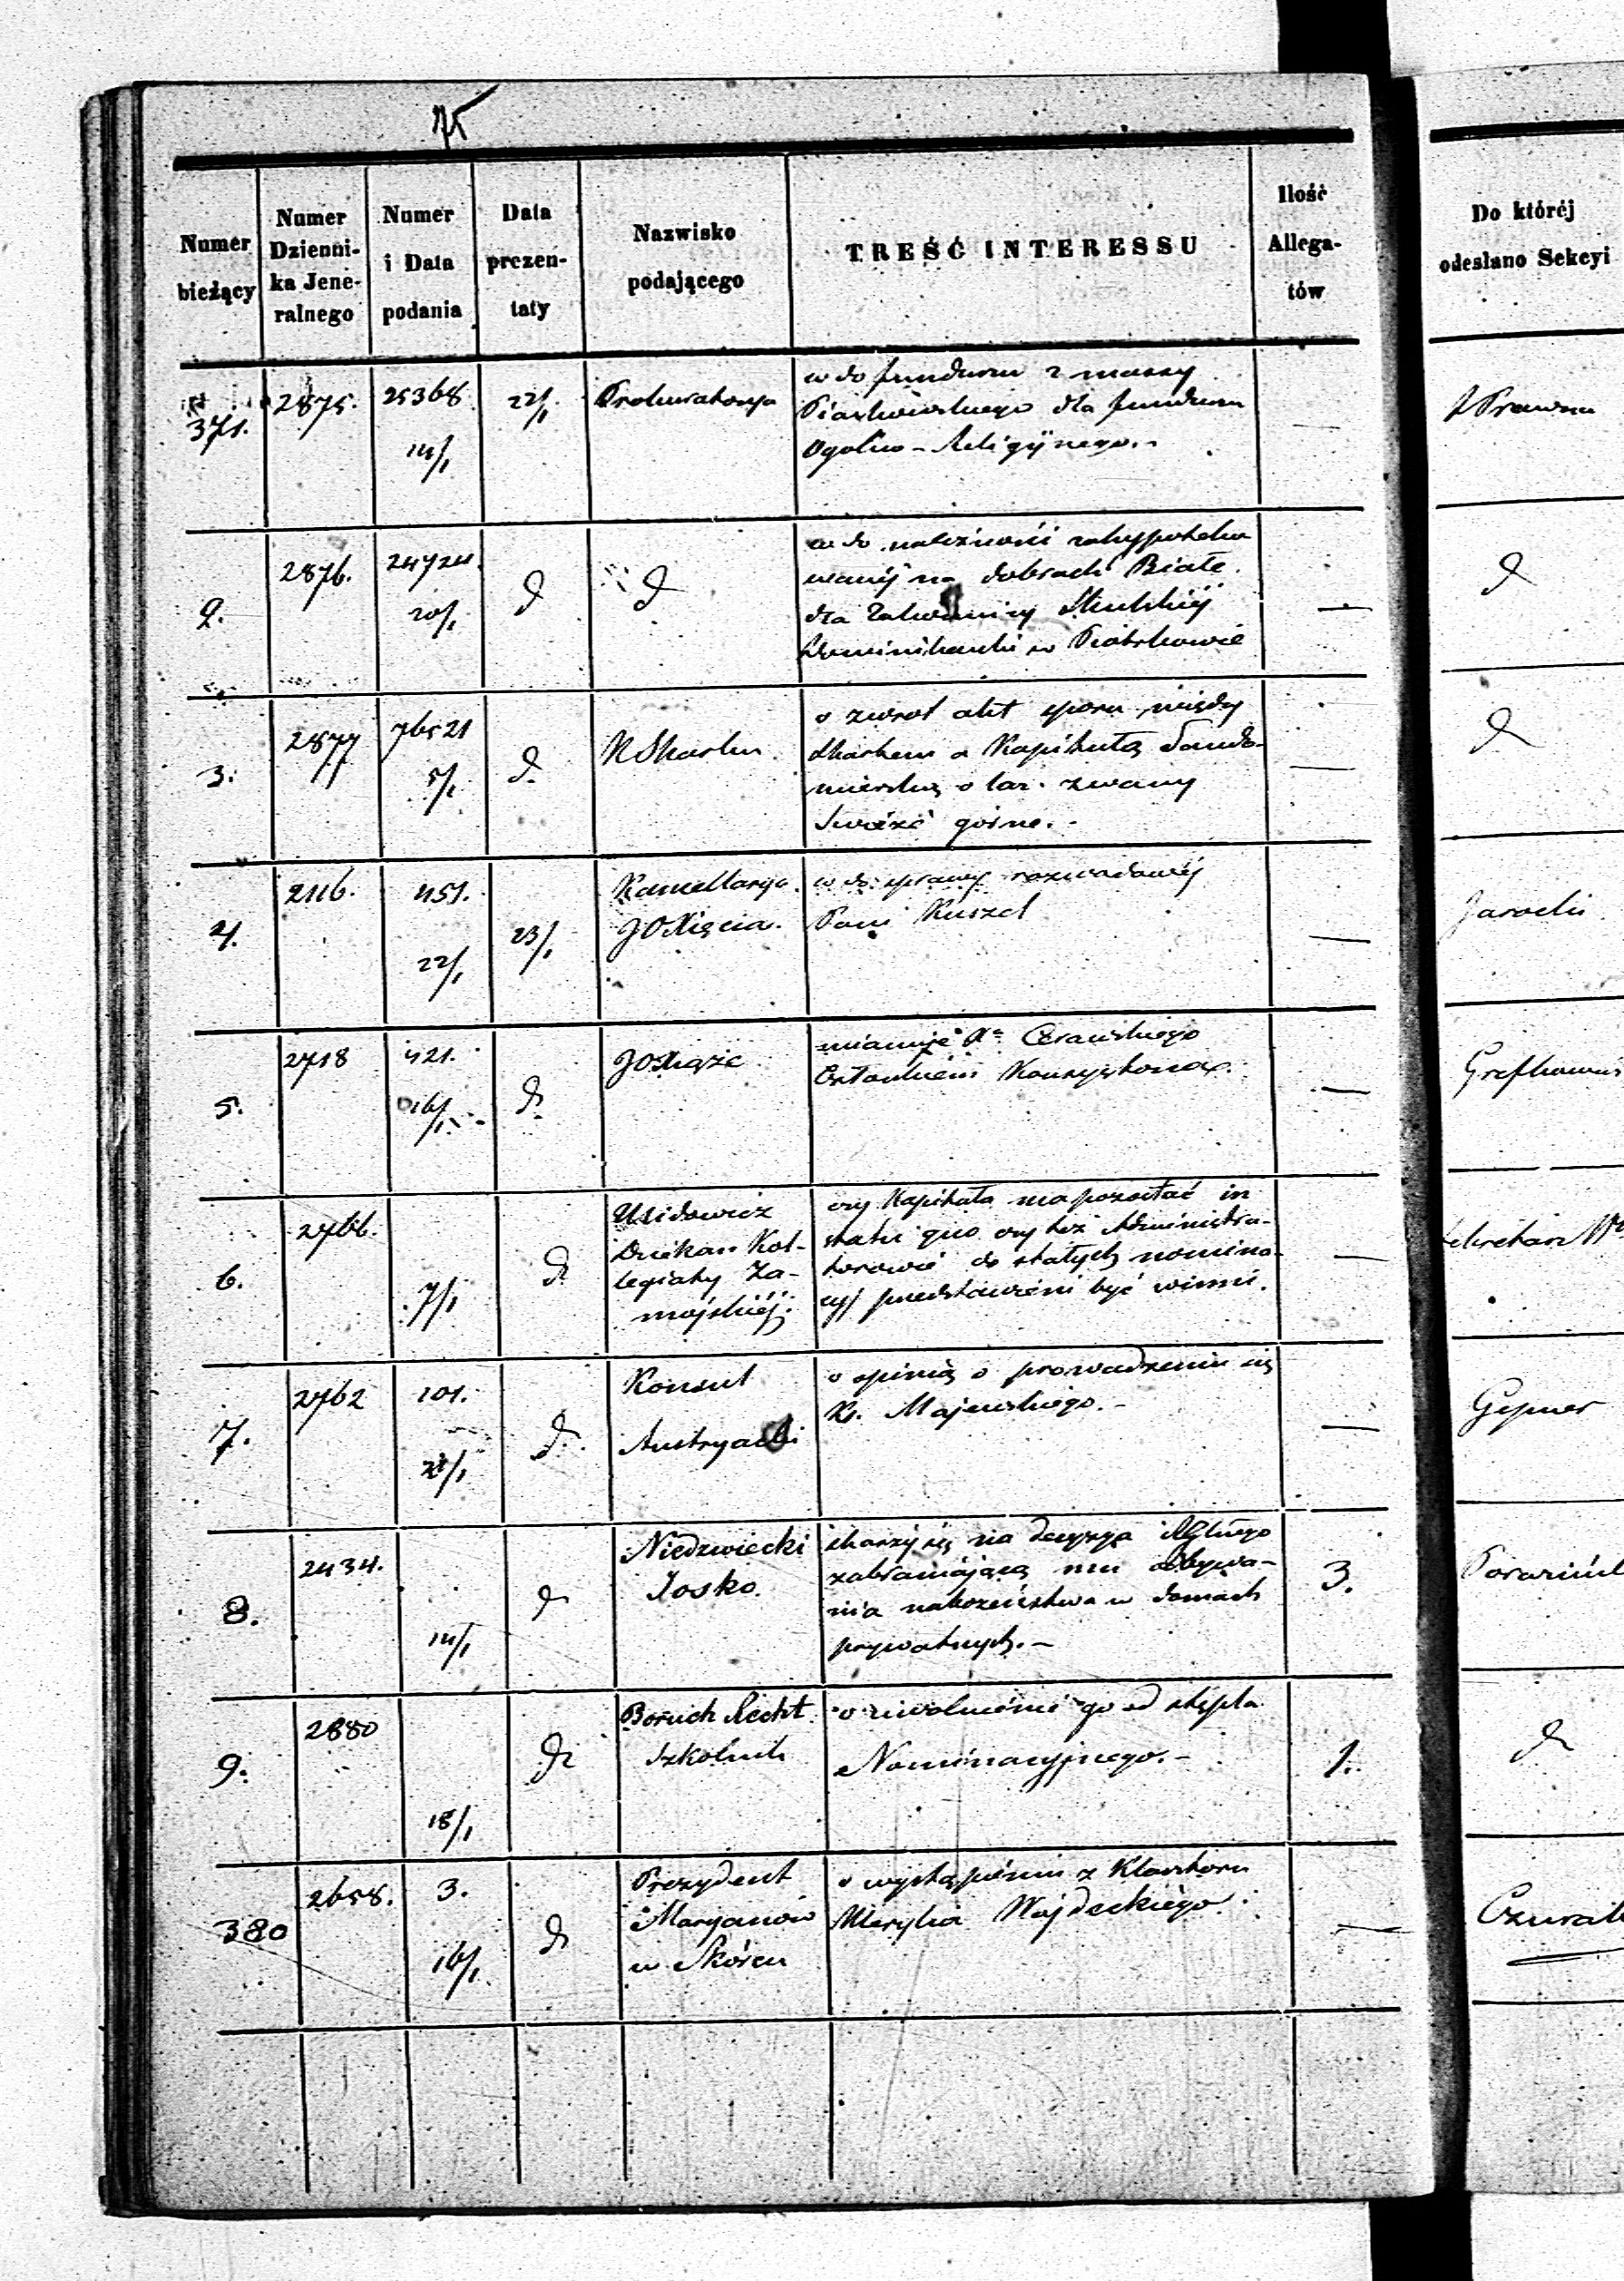 75
Numer
bieżący
Numer
Dzienni-
ka Jene-
ralnego
Numer
i Data
podania
Data
prezen-
taty
Nazwisko
podającego
TREŚĆ INTERESSU
Ilość
Allega-
tów
Do któréj
odesłano Sekcyi
371. 2875. 25368 14/1 22/1 Prokuratorya
w do funduszu z massy
dla funduszu
Ogólno-Religijnego.-
—
Prawna
2. 2876. 24724. 20/1 d d
w do należności zahypoteko
wanéj na dobrach Białe
dla Zakonnicy
Dominikanki w Piotrkowie
—
d
3. 2877 76521 5/1 d. K Skarbu
o zwrot akt sporu między
Skarbem a Kapitułą Sando-
mierską o las zwany
górne.-
—
d
4. 2116. 451. 22/1 23/1
Kancellarya
JOXięcia.
w do sprawy rozwodowéj
Pani Kuszel
—
Jarocki
5. 2718 421. 16/1 d. JOXiąże
mianuje Xa
Członkiem Konsystorza.
—
6. 2766. 7/1 d.
Dziekan Kol-
legiaty Za-
mojskiéj.
czy Kapituła ma pozostać in
statu quo czy też Administra-
torowie do stałych nomina-
cyj przedstawieni być winni.
—
Sekretarz
7. 2762 101. 21/1 d.
Konsul
Austryacki
o opinią o prowadzeniu się
X. Majewskiego.-
—
Gepner
8. 2434. 14/1 d
Niedzwiecki
Josko.
skarży się na decyzyą RGlnego
zabraniającą mu odbywa-
nia nabożeństwa w domach
prywatnych.-
3.
9. 2880 18/1 d
Boruch Recht
Szkolnik
o uwolnienie go od stępla
Nominacyjnego.-
1.
d
380 2658. 3. 16/1 d
Prezydent
Maryanów
w Skórcu
o wystąpieniu z Klasztoru
Kleryka Wojdeckiego.
—